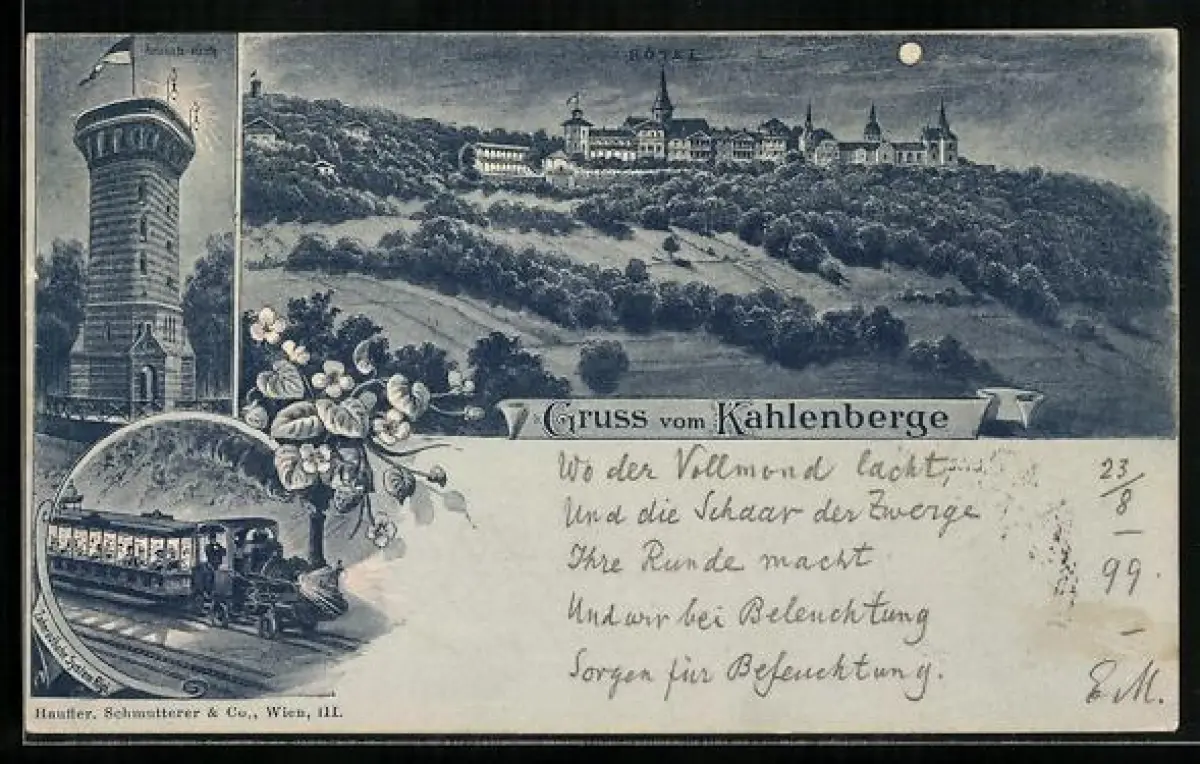 HOTEL
Gruss vom Kahlenberge
Wo der Vollmond lacht,
Und die Schaar der Zwerge
Ihre Runde macht
Und wir bei Beleuchtung
Sorgen für Befeuchtung.
23/8 – 99. –
E.M.
Hauffer, Schmutterer & Co., Wien, III.